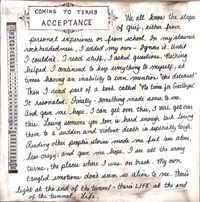 COMING TO TERMS
ACCEPTANCE
We all know the stages
of grief, either from
personal experience or from school. In my staunch
rockheadedness, I added my own - Ignore it. Until
I couldn't. I read stuff, I asked questions. Nothing
helped. I continued to keep everything to myself, at
times having an inability to even mention "the deceased."
Then I read part of a book called "No Time for Goodbyes"
It resonated. Finally - Something made sense to me.
And gave me hope. I can get over this, I will get over
this. Losing someone you love is hard enough, but losing
them to a sudden and violent death is especially tough.
Reading other peoples stories made me feel less alone,
less crazy, and gave me hope. I see all the wrong
turns, the places where I was on track. My own
tangled emotions don't seem so alien to me. There's
light at the end of the tunnel - there's LIFE at the end
of the tunnel. Life.